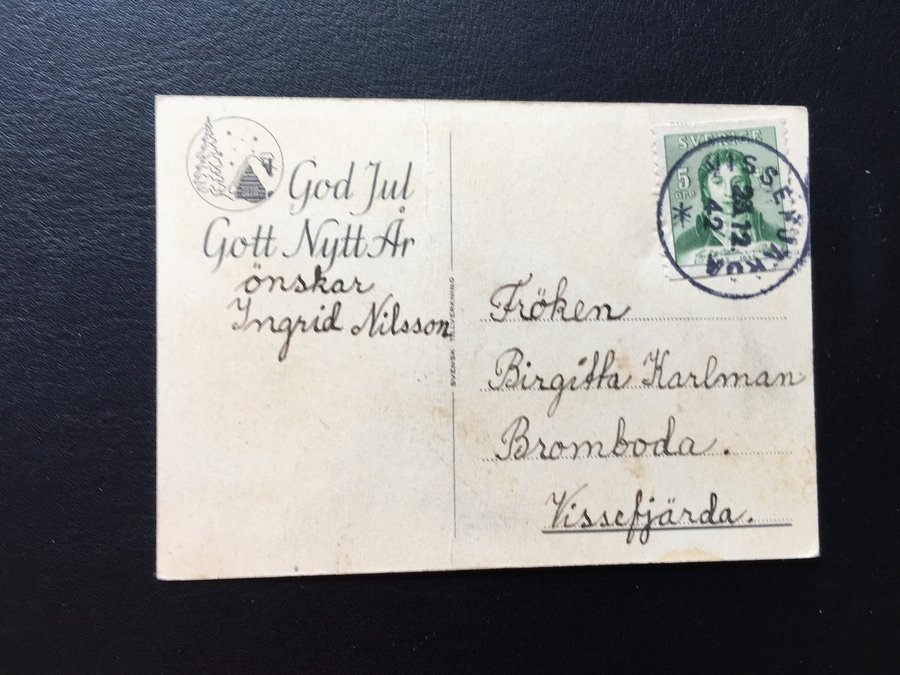 God Jul
Gott Nytt År
önskar
Ingrid Nilsson
SVENSK TILLVERKNING
SVERIGE
5
ÖRE
VISSEFJÄRDA
12
42
Fröken
Birgitta Karlman
Bromboda.
Vissefjärda.